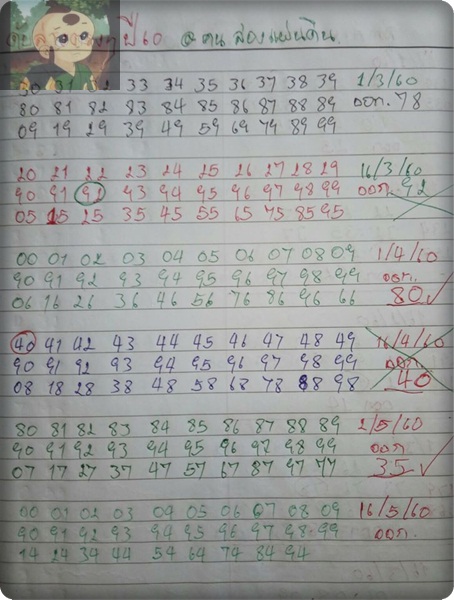 ปี 60 @ คน สองแผ่นดิน
30 31 32 33 34 35 36 37 38 39 1/3/60
80 81 82 83 84 85 86 87 88 89 ออก. 78
09 19 29 39 49 59 69 79 89 99
20 21 22 23 24 25 26 27 28 29 16/3/60
90 91 92 93 94 95 96 97 98 99 ออก. 92
05 15 25 35 45 55 65 75 85 95
00 01 02 03 04 05 06 07 08 09 1/4/60
90 91 92 93 94 95 96 97 98 99 ออก.
06 16 26 36 46 56 76 86 96 66 80 ✓
40 41 42 43 44 45 46 47 48 49 16/4/60
90 91 92 93 94 95 96 97 98 99 ออก.
08 18 28 38 48 58 68 78 88 98 40
80 81 82 83 84 85 86 87 88 89 2/5/60
90 91 92 93 94 95 96 97 98 99 ออก
07 17 27 37 47 57 67 87 97 77 35 ✓
00 01 02 03 04 05 06 07 08 09 16/5/60
90 91 92 93 94 95 96 97 98 99 ออก.
14 24 34 44 54 64 74 84 94